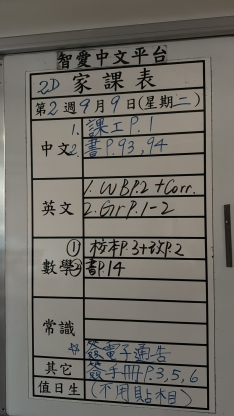 智愛中文平台
2D 家課表
第2週9月9日(星期二)
中文
1. 課工P.1
2. 書P.93,94
英文
1. WBP.2 + Corr.
2. GrP.1-2
數學
① 校本P.3+改P.2
② 書P.14
常識
☆ 簽電子通告
其它
簽手冊P.3,5,6
值日生
(不用貼相)